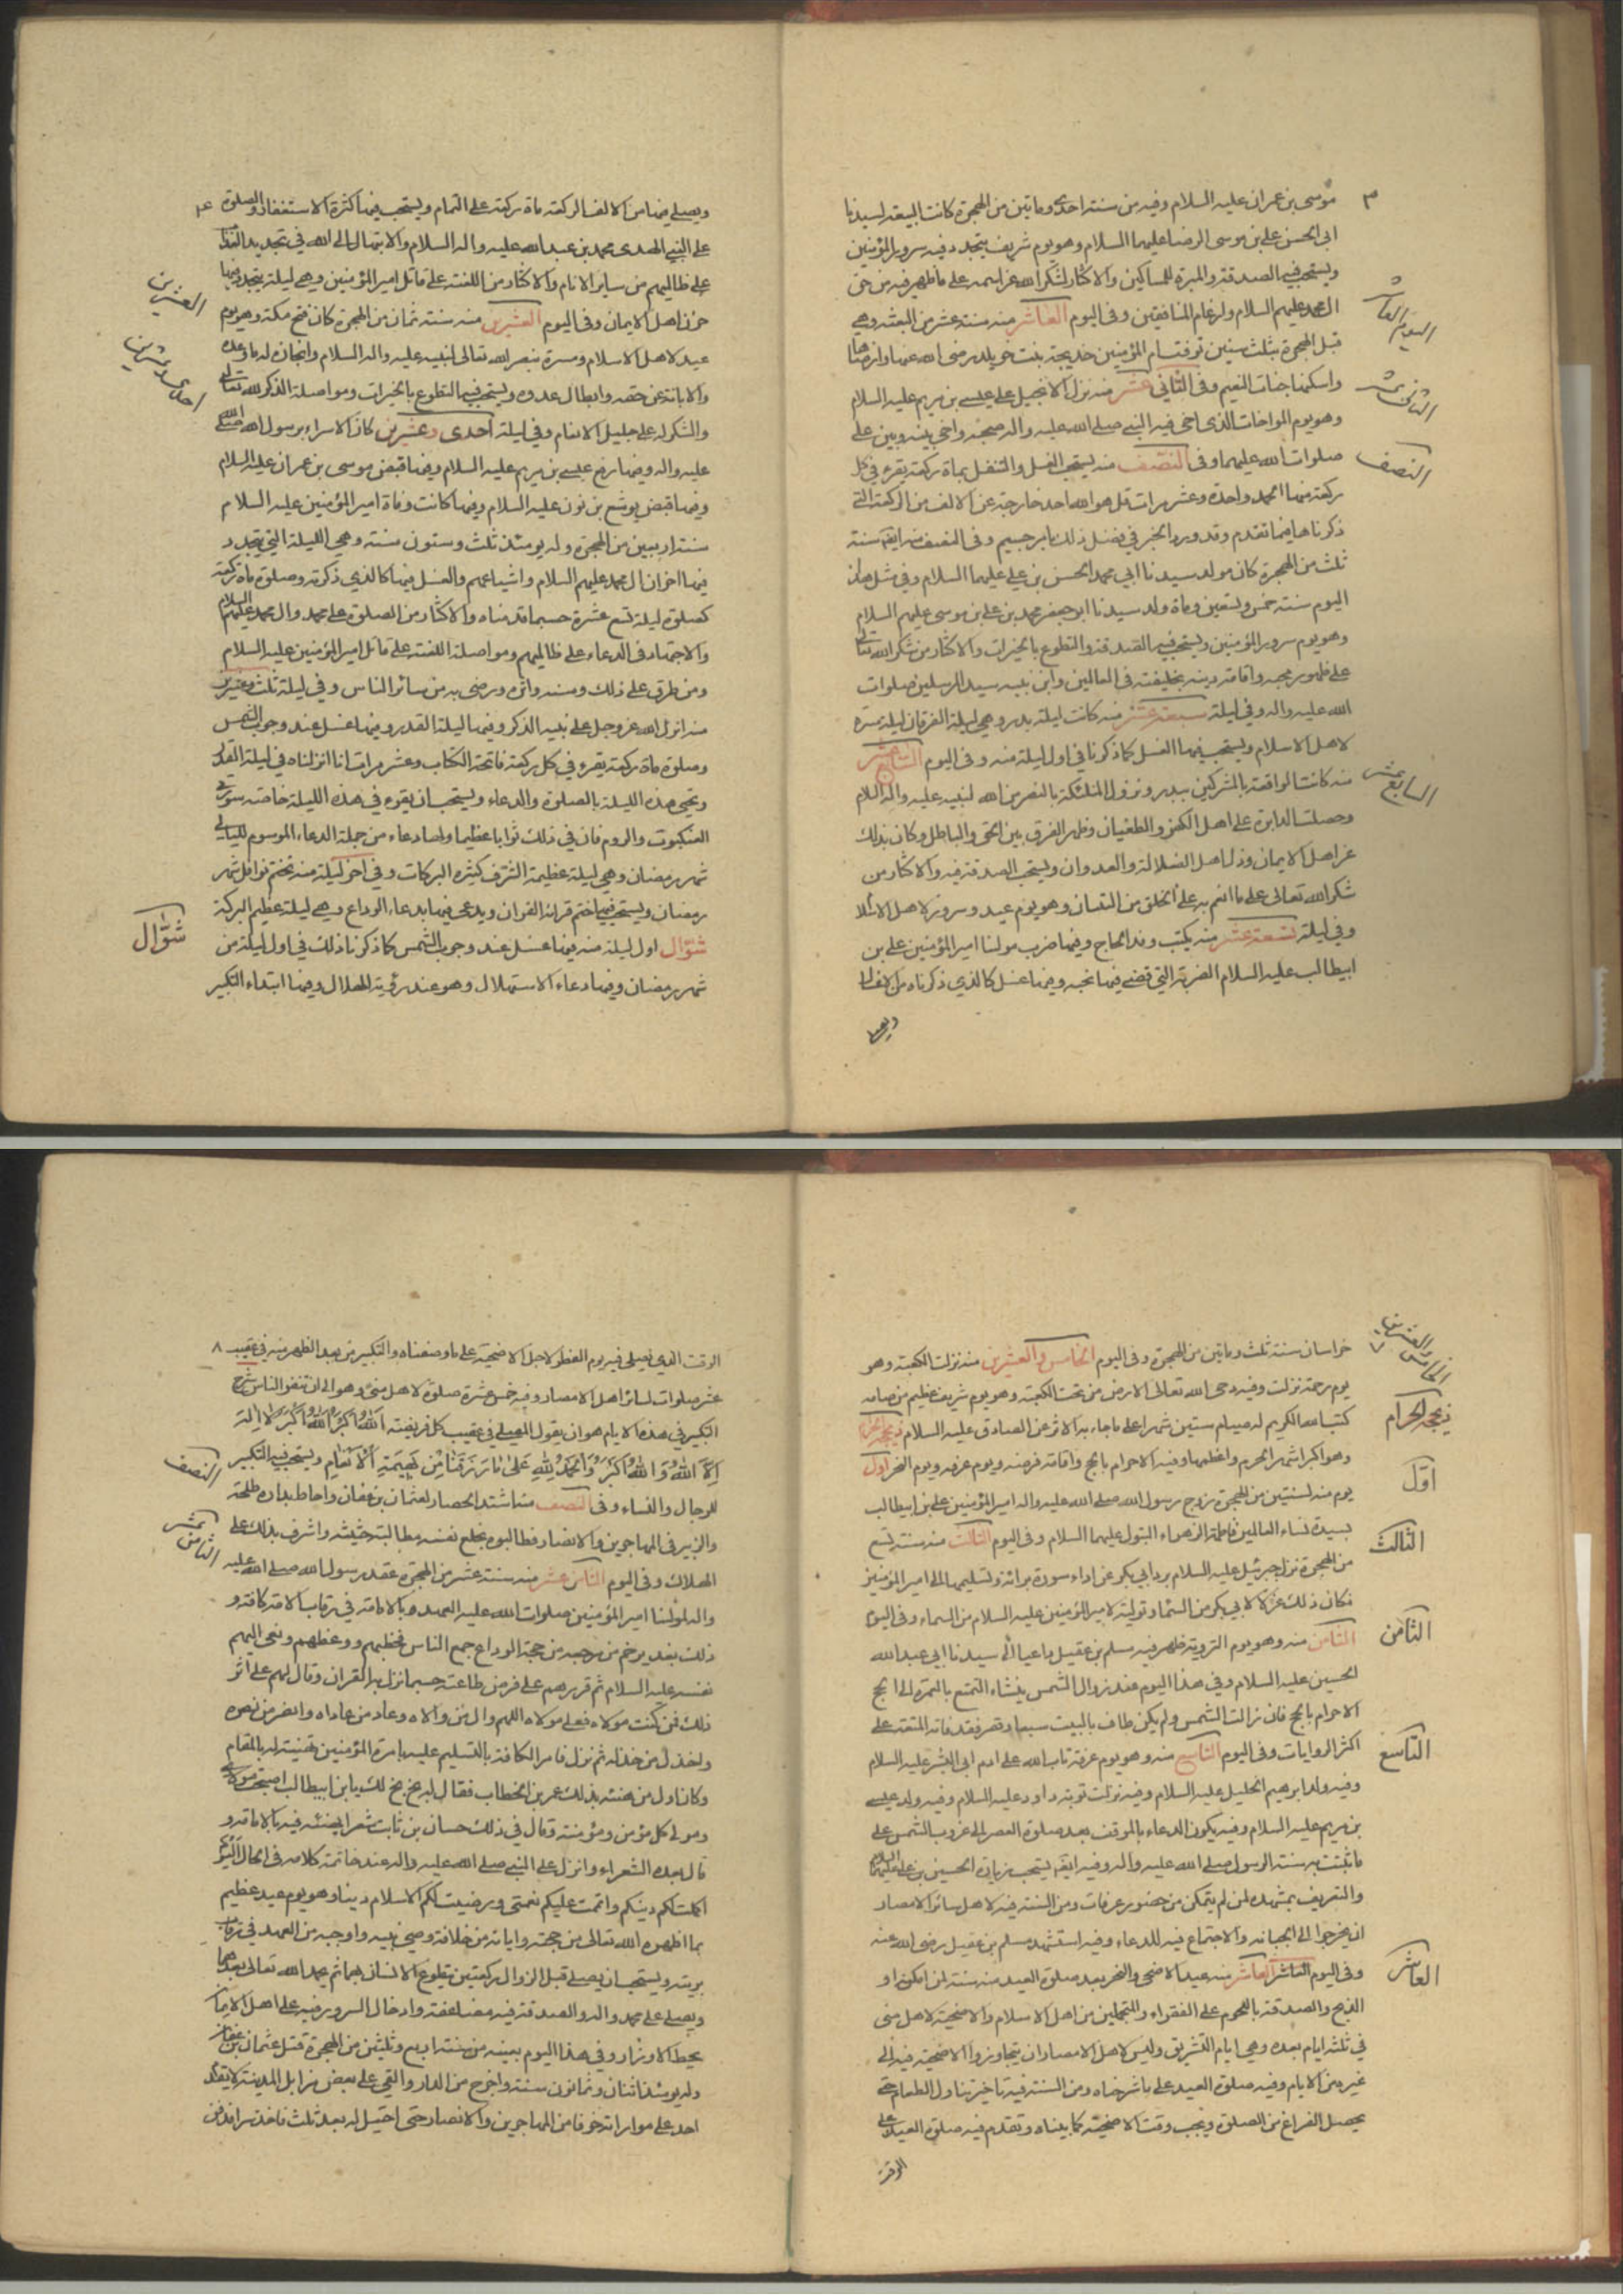 ٣
موسى بن عمران عليه السلام وفيه من سنته احدى وماتين من الهجرة كانت البيعة لسيدنا
ابى الحسن على بن موسى الرضا عليهما السلام وهو يوم شريف يتجدد فيه سرور المؤمنين
ويستحب فيه الصدقة والمبرة للمساكين والاكثار لشكر الله عز اسمه على ما ظهر فيه من حق
ال محمد عليهم السلام وارغام المنافقين وفى اليوم العاشر منه سنة عشر من البعثة وهي
اليوم العاشر
قبل الهجرة بثلث سنين توفت ام المؤمنين خديجة بنت خويلد رضى الله عنها وارضاها
واسكنها جنات النعيم وفى الثانى عشر منه نزل الانجيل على عيسى بن مريم عليه السلام
الثانى عشر
وهو يوم المواخات الذى اخى فيه النبى صلى الله عليه واله صحبه واخى بينه وبين على
صلوات الله عليهما وفى النصف منه يستحب الغسل والتنفل بماة ركعة يقرء في كل
النصف
ركعة منها الحمد واحدة وعشر مرات قل هو الله احد خارجة عن الالف من الركعة التى
ذكرناها فيما تقدم وقد ورد الخبر في فضل ذلك بامر جسيم وفى النصف منه ايضا سنة
ثلث من الهجرة كان مولد سيدنا ابى محمد الحسن بن على عليهما السلام وفي مثل هذا
اليوم سنته خمس وتسعين وماة ولد سيدنا ابو جعفر محمد بن على بن موسى عليهم السلام
وهو يوم سرور المؤمنين ويستحب فيه الصدقة والتطوع بالخيرات والاكثار من شكر الله تعالى
على ظهور حججه واقامة دينه بخليفته فى العالمين وابن نبيه سيد المرسلين صلوات
الله عليه واله وفي ليلة سبعة عشر منه كانت ليلة بدر وهي ليلة الفرقان ليلة مسرة
لاهل الاسلام ويستحب فيها الغسل كما ذكرنا في اول ليلة منه وفى اليوم السابع عشر
السابع عشر
منه كانت الواقعة بالمشركين ببدر ونزول الملئكة بالنصر من الله لنبيه عليه واله السلام
وحصلت الدابرة على اهل الكفر والطغيان وظهر الفرق بين الحق والباطل وكان بذلك
عز اهل الايمان وذل اهل الضلالة والعدوان ويستحب الصدقة فيه والاكثار من
شكر الله تعالى على ما انعم به على الخلق من التبيان وهو يوم عيد وسرور لاهل الاسلام
وفي ليلة تسعة عشر منه يكتب وفد الحاج وفيها ضرب مولنا امير المؤمنين على بن
ابيطالب عليه السلام الضربة التي قضى فيها نحبه وفيها غسل كالذي ذكرناه من الاغسال
ويصلى
٤
ويصلى فيها من الالف الركعة ماة ركعة على التمام ويستحب فيها كثرة الاستغفار والصلوة
على النبى المهدى محمد بن عبد الله عليه واله السلام والابتهال الى الله في تجديد العذاب
على ظالميهم من ساير الانام والاكثار من اللعنة على قاتل امير المؤمنين وهي ليلة يتجدد فيها
حزن اهل الايمان وفى اليوم العشرين منه سنة ثمان من الهجرة كان فتح مكة وهو يوم
العشرين
عيد لاهل الاسلام ومسرة بنصر الله تعالى لنبيه عليه واله السلام وانجازه له ما وعده
والابانة عن حقه وابطال عدوه ويستحب فيه التطوع بالخيرات ومواصلة الذكر لله تعالى
احدى وعشرين
والشكر له على جليل الانعام وفي ليلة احدى وعشرين كان الاسراء برسول الله صلى الله
عليه واله وفيها رفع عيسى بن مريم عليه السلام وفيها قبض موسى بن عمران عليه السلام
وفيها قبض يوشع بن نون عليه السلام وفيها كانت وفاة امير المؤمنين عليه السلام
سنة اربعين من الهجرة وله يومئذ ثلث وستون سنته وهي الليلة التي يتجدد
فيها احزان ال محمد عليهم السلام واشياعهم والغسل فيها كالذي ذكرته وصلوة ماة ركعة
كصلوة ليلة تسع عشرة حسبما قدمناه والاكثار من الصلوة على محمد وال محمد عليهم السلام
والاجتهاد فى الدعاء على ظالميهم ومواصلة اللعنة على قاتل امير المؤمنين عليه السلام
ومن طرق على ذلك وسببه واثره ورضى به من سائر الناس وفي ليلة ثلث وعشرين
منه انزل الله عز وجل على نبيه الذكر وفيها ليلة القدر وفيها غسل عند وجوب الشمس
وصلوة ماة ركعة يقرء في كل ركعة فاتحة الكتاب وعشر مرات انا انزلناه في ليلة القدر
وتحيى هذه الليلة بالصلوة والدعاء ويستحب ان يقرء في هذه الليلة خاصة سورتى
العنكبوت والروم فان في ذلك ثوابا عظيما ولها دعاء من جملة الدعاء الموسوم لليالى
شهر رمضان وهي ليلة عظيمة الشرف كثيرة البركات وفي اخر ليلة منه تختم نوافل شهر
رمضان ويستحب فيها ختم قراءة القران ويدعى فيها بدعاء الوداع وهي ليلة عظيم البركة
شوال اول ليلة منه فيها غسل عند وجوب الشمس كما ذكرنا ذلك في اول ليلة من
شوّال
شهر رمضان وفيها دعاء الاستهلال وهو عند رؤية الهلال وفيها ابتداء التكبير
٧
الخامس والعشرين
خراسان سنة ثلث وماتين من الهجرة وفى اليوم الخامس والعشرين منه نزلت الكعبة وهو
يوم رحمة نزلت وفيه دحى الله تعالى الارض من تحت الكعبة وهو يوم شريف عظيم من صامه
كتب الله الكريم له صيام ستين شهرا على ما جاء به الاثر عن الصادق عليه السلام ذى حجة الحرام
ذى حجة الحرام
وهو اكبر اشهر الحرم واعظمها وفيه الاحرام بالحج واقامة فرضه ويوم عرفة ويوم النحر اول
اوّل
يوم منه لسنتين من الهجرة زوج رسول الله صلى الله عليه واله امير المؤمنين على بن ابيطالب
بسيدة نساء العالمين فاطمة الزهراء البتول عليهما السلام وفى اليوم الثالث منه سنة تسع
الثالث
من الهجرة نزل جبرئيل عليه السلام برد ابى بكر عن اداء سورة براءة وتسليمها الى امير المؤمنين
فكان ذلك عزلا لابي بكر من السماء وتولية لامير المؤمنين عليه السلام من السماء وفى اليوم
الثامن منه وهو يوم التروية ظهر فيه مسلم بن عقيل داعيا الى سيدنا ابى عبد الله
الثامن
الحسين عليه السلام وفي هذا اليوم عند زوال الشمس ينشاء التمتع بالعمرة الى الحج
الاحرام بالحج فان زالت الشمس ولم يكن طاف بالبيت سبعا وقصر فقد فاته المتعة على
اكثر الروايات وفى اليوم التاسع منه وهو يوم عرفة تاب الله على ادم ابى البشر عليه السلام
التاسع
وفيه ولد ابرهيم الخليل عليه السلام وفيه نزلت توبة داود عليه السلام وفيه ولد عيسى
بن مريم عليه السلام وفيه يكون الدعاء بالموقف بعد صلوة العصر الى غروب الشمس على
ما ثبتت به سنة الرسول صلى الله عليه واله وفيه ايضا يستحب زيارة الحسين بن على عليهما السلام
والتعريف بمشهده لمن لم يتمكن من حضور عرفات ومن السنة فيه لاهل سائر الامصار
ان يخرجوا الى الجبانة والاجتماع فيه للدعاء وفيه استشهد مسلم بن عقيل رضى الله عنه
وفى اليوم العاشر العاشر منه عيد الاضحى والنحر بعد صلوة العيد منه سنة لمن امكن او
العاشر
الذبح والصدقة باللحوم على الفقراء والمتجملين من اهل الاسلام والاضحية لاهل منى
في ثلثة ايام بعده وهي ايام التشريق وليس لاهل الامصار ان يتجاوزوا الاضحية فيه الى
غيره من الايام وفيه صلوة العيد على ما شرحناه ومن السنة فيه تاخير تناول الطعام حتى
يحصل الفراغ من الصلوة ويجب وقت الاضحية كما بيناه وتقدم فيه صلوة العيد على
الوقت
٨
الوقت الذي يصلى فيه يوم الفطر لاجل الاضحية على ما وصفناه والتكبير من بعد الظهر منه في عقيب
عشر صلوات لسائر اهل الامصار وفيه خمس عشرة صلوة لاهل منى وهو الى ان تنفر الناس وشرح
التكبير في هذه الايام هو ان يقول المصلى في عقيب كل فريضة اَللهُ اَكبَرُ اَللهُ اَكبَرُ لاَ اِلهَ
اِلاَّ اللهُ وَاللهُ اَكبَرُ وَالحَمدُ لِلّهِ عَلى مَا رَزَقَنَا مِن بَهِيمَةِ اَلاَنعَامِ ويستحب فيه التكبير
النصف
للرجال والنساء وفى النصف منه اشتد الحصار لعثمان بن عفان واحاط بداره طلحة
والزبير فى المهاجرين والانصار فطالبوه بخلع نفسه مطالبة حثيثة واشرف بذلك على
الثامن عشر
الهلاك وفى اليوم الثامن عشر منه سنة عشر من الهجرة عقد رسول الله صلى الله عليه
واله لمولنا امير المؤمنين صلوات الله عليه العهد بالامامة في رقاب الامة كافة و
ذلك بغدير خم من مرجعه من حجة الوداع جمع الناس فخطبهم ووعظهم ونعى اليهم
نفسه عليه السلام ثم قررهم على فرض طاعته حسبما نزل به القران وقال لهم على اثر
ذلك فمن كنت مولاه فعلى مولاه اللهم وال من والاه وعاد من عاداه وانصر من نصره
واخذل من خذله ثم نزل فامر الكافة بالتسليم عليه بامرة المؤمنين تهنية له بالمقام
وكان اول من هنئه بذلك عمر بن الخطاب فقال له بخ بخ لك يا بن ابيطالب اصبحت مولاى
ومولى كل مؤمن ومؤمنة وقال في ذلك حسان بن ثابت شعرا يهنئه فيه بالامامة و
قال بعده الشعراء وانزل على النبى صلى الله عليه واله عند خاتمة كلامه فى الحال اليوم
اكملت لكم دينكم واتممت عليكم نعمتى ورضيت لكم الاسلام دينا وهو يوم عيد عظيم
بما اظهره الله تعالى من حججه واياته من خلافة وصى نبيه واوجبه من العهد في رقاب
بريته ويستحب ان يصلى قبل الزوال ركعتين يتطوع الانسان بهما ثم يحمد الله تعالى بعدهما
ويصلى على محمد واله والصدقة فيه مضاعفة وادخال السرور فيه على اهل الايمان
يحط الاوزار وفي هذا اليوم بعينه من سنة اربع وثلثين من الهجرة قتل عثمان بن عفان
وله يومئذ اثنان وثمانون سنة واخرج من الدار والقى على بعض مزابل المدينة لا يقدم
احد على مواراته خوفا من المهاجرين والانصار حتى احتيل له بعد ثلث فاخذ سرا فدفن